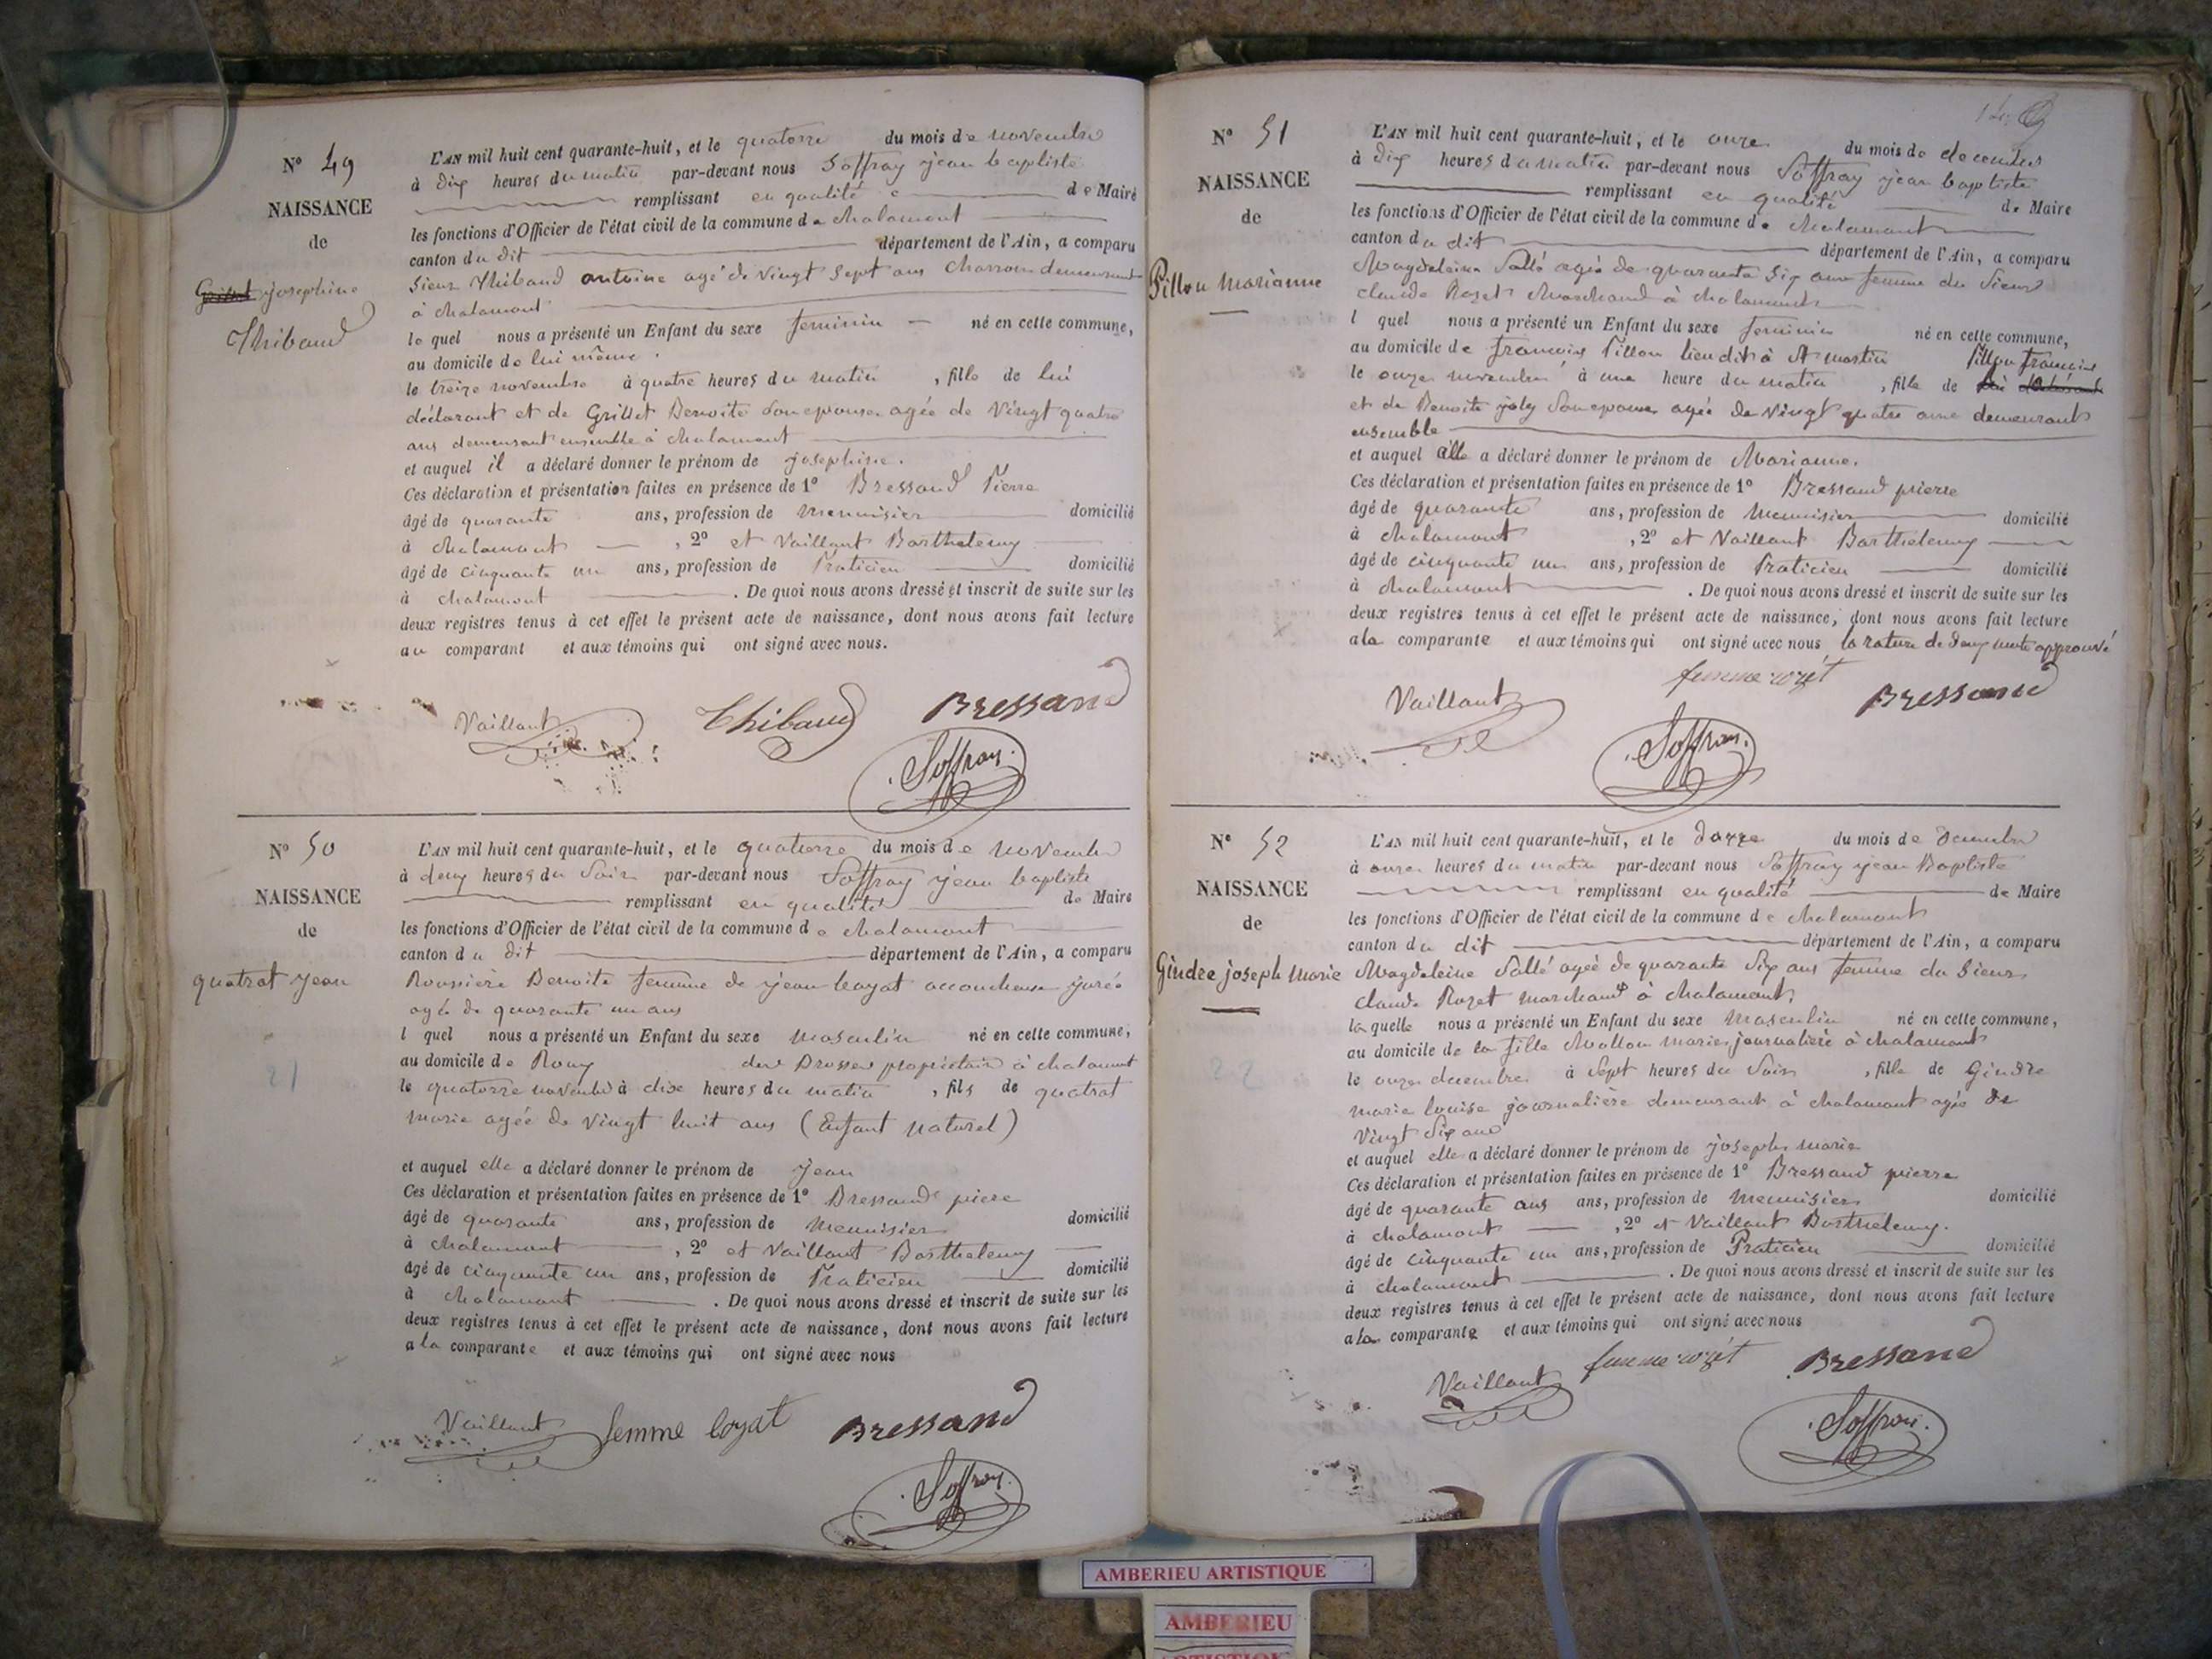 N° 49
NAISSANCE
de
Grillet josephine
Thibaud
L'AN mil huit cent quarante-huit, et le quatorze du mois de novembre
à dix heures du matin par-devant nous Soffray jean baptiste
remplissant en qualité de Maire
les fonctions d'Officier de l'état civil de la commune de chalamont
canton du dit département de l'Ain, a comparu
Sieur Thibaud antoine agé de vingt sept ans charron demeurant
à chalamont
lequel nous a présenté un Enfant du sexe feminin né en cette commune,
au domicile de lui même.
le treize novembre à quatre heures du matin, fille de lui
déclarant et de Grillet Benoite son epouse agée de vingt quatre
ans demeurant ensemble à chalamont
et auquel il a déclaré donner le prénom de josephine.
Ces déclaration et présentation faites en présence de 1° Bressand Pierre
âgé de quarante ans, profession de menuisier domicilié
à chalamont, 2° et Vaillant Barthelemy
âgé de cinquante un ans, profession de Praticien domicilié
à chalamont. De quoi nous avons dressé et inscrit de suite sur les
deux registres tenus à cet effet le présent acte de naissance, dont nous avons fait lecture
au comparant et aux témoins qui ont signé avec nous.
Vaillant Thibaud Bressand
Soffray
N° 50
NAISSANCE
de
quatrat jean
21
L'AN mil huit cent quarante-huit, et le quatorze du mois de novembre
à deux heures du soir par-devant nous Soffray jean baptiste
remplissant en qualité de Maire
les fonctions d'Officier de l'état civil de la commune de chalamont
canton du dit département de l'Ain, a comparu
Roussière Benoite femme de jean loyat accoucheuse jurée
agée de quarante un ans
l quel nous a présenté un Enfant du sexe masculin né en cette commune,
au domicile de Rouy propriétaire à chalamont
le quatorze novembre à dixe heures du matin, fils de quatrat
marie agée de vingt huit ans (Enfant naturel)
et auquel elle a déclaré donner le prénom de jean
Ces déclaration et présentation faites en présence de 1° Bressand piere
âgé de quarante ans, profession de menuisier domicilié
à chalamont, 2° et Vaillant Barthelemy
âgé de cinquante un ans, profession de Praticien domicilié
à chalamont. De quoi nous avons dressé et inscrit de suite sur les
deux registres tenus à cet effet le présent acte de naissance, dont nous avons fait lecture
a la comparante et aux témoins qui ont signé avec nous
Vaillant femme loyat Bressand
Soffray
N° 51
NAISSANCE
de
Pillon marianne
L'AN mil huit cent quarante-huit, et le onze du mois de decembre
à dix heures du matin par-devant nous Soffray jean baptiste
remplissant en qualité de Maire
les fonctions d'Officier de l'état civil de la commune de chalamont
canton du dit département de l'Ain, a comparu
Magdeleine Sallé agée de quarante six ans femme du Sieur
claude Rozet marchand à chalamont
l quel nous a présenté un Enfant du sexe feminin né en cette commune,
au domicile de francois Pillon lieu dit à St martin Pillon francois
le onze novembre à une heure du matin, fille de lui déclarant
et de Benoite joly son epouse agée de vingt quatre ans demeurant
ensemble
et auquel elle a déclaré donner le prénom de Marianne.
Ces déclaration et présentation faites en présence de 1° Bressand pierre
âgé de quarante ans, profession de menuisier domicilié
à chalamont, 2° et Vaillant Barthelemy
âgé de cinquante un ans, profession de Praticien domicilié
à chalamont. De quoi nous avons dressé et inscrit de suite sur les
deux registres tenus à cet effet le présent acte de naissance, dont nous avons fait lecture
a la comparante et aux témoins qui ont signé avec nous la rature de deux mots approuvé
Vaillant femme rozét Bressand
Soffray
N° 52
NAISSANCE
de
Gindre joseph marie
22
L'AN mil huit cent quarante-huit, et le douze du mois de decembre
à onze heures du matin par-devant nous Soffray jean Baptiste
remplissant en qualité de Maire
les fonctions d'Officier de l'état civil de la commune de chalamont
canton du dit département de l'Ain, a comparu
Magdeleine Sallé agée de quarante six ans femme du Sieur
claude Rozet marchand à chalamont,
laquelle nous a présenté un Enfant du sexe masculin né en cette commune,
au domicile de la fille Mallon marie journalière à chalamont
le onze decembre à sept heures du soir, fille de Gindre
marie louise journalière demeurant à chalamont agée de
vingt six ans
et auquel elle a déclaré donner le prénom de joseph marie
Ces déclaration et présentation faites en présence de 1° Bressand pierre
âgé de quarante ans ans, profession de menuisier domicilié
à chalamont, 2° et Vaillant Barthelemy.
âgé de cinquante un ans, profession de Praticien domicilié
à chalamont. De quoi nous avons dressé et inscrit de suite sur les
deux registres tenus à cet effet le présent acte de naissance, dont nous avons fait lecture
a la comparante et aux témoins qui ont signé avec nous
Vaillant femme rozét Bressand
Soffray
AMBERIEU ARTISTIQUE
AMBERIEU
ARTISTIQUE